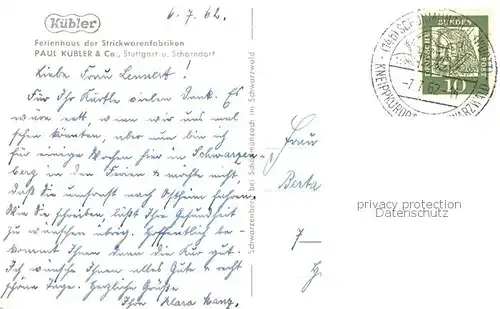 Kübler
Ferienhaus der Strickwarenfabriken
PAUL KÜBLER & Co., Stuttgart u. Schorndorf
6.7.62.
Liebe Frau Lennert!
Für Ihr Kärtle vielen Dank. Es
wäre nett, wenn wir uns mal
sehen könnten, aber nun bin ich
für einige Wochen hier in Schwarzen-
berg in den Ferien & möchte nicht
daß Sie umsonst nach Ostheim fahren.
Wie Sie schreiben, läßt Ihre Gesundheit
zu wünschen übrig. Hoffentlich be-
kommt Ihnen dann die Kur gut.
Ich wünsche Ihnen alles Gute & recht
schöne Tage. Herzliche Grüße
Ihre Klara
Schwarzenberg bei Schönmünzach im Schwarzwald
Frau
Berta
7
DEUTSCHE BUNDESPOST
10
-7.7.62
KNEIPPKURORT
privacy protection
Datenschutz